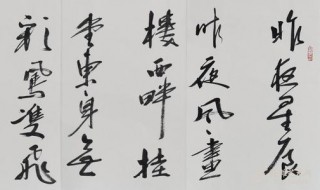 昨夜星辰
昨夜風畫
樓西畔桂
堂東身無
彩鳳雙飛